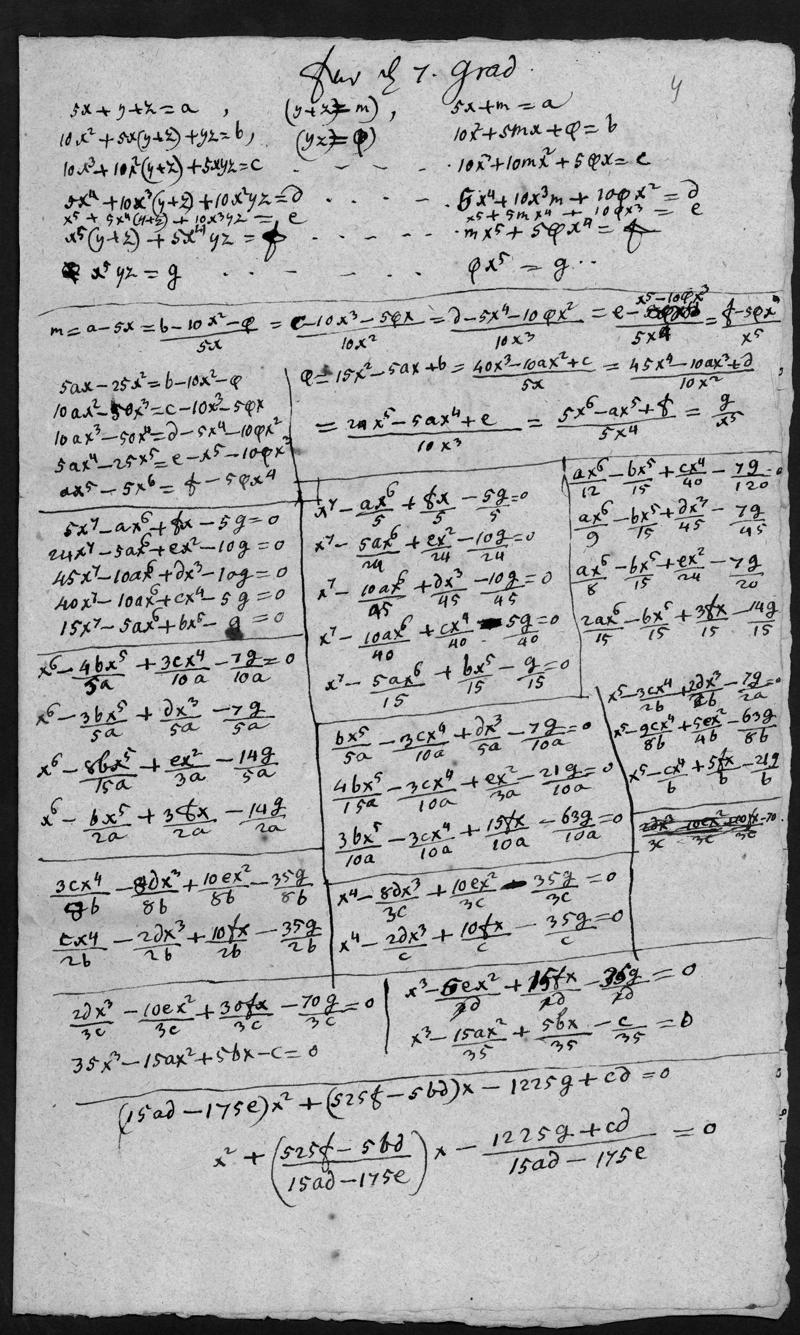 7. Grad
4
5x + y + z = a , (y+z = m) , 5x + m = a
10x² + 5x(y+z) + yz = b, (yz = φ) 10x² + 5mx + φ = b
10x³ + 10x²(y+z) + 5xyz = c - - - - 10x³ + 10mx² + 5φx = c
5x⁴ + 10x³(y+z) + 10x²yz = d . . . . 5x⁴ + 10x³m + 10φx² = d
x⁵ + 5x⁴(y+z) + 10x³yz = e x⁵ + 5mx⁴ + 10φx³ = e
x⁵(y+z) + 5x⁴yz = f . . - - - - mx⁵ + 5φx⁴ = f
x⁵yz = g . . - . . - . - φx⁵ = g . .
m = a - 5x = (b - 10x² - φ)/5x = (c - 10x³ - 5φx)/10x² = (d - 5x⁴ - 10φx²)/10x³ = (e - x⁵ - 10φx³)/5x⁴ = (f - 5φx⁴)/x⁵
5ax - 25x² = b - 10x² - φ
10ax² - 50x³ = c - 10x³ - 5φx
10ax³ - 50x⁴ = d - 5x⁴ - 10φx²
5ax⁴ - 25x⁵ = e - x⁵ - 10φx³
ax⁵ - 5x⁶ = f - 5φx⁴
φ = 15x² - 5ax + b = (40x³ - 10ax² + c)/5x = (45x⁴ - 10ax³ + d)/10x²
= (24x⁵ - 5ax⁴ + e)/10x³ = (5x⁶ - ax⁵ + f)/5x⁴ = g/x⁵
5x⁷ - ax⁶ + fx - 5g = 0
24x⁷ - 5ax⁶ + ex² - 10g = 0
45x⁷ - 10ax⁶ + dx³ - 10g = 0
40x⁷ - 10ax⁶ + cx⁴ - 5g = 0
15x⁷ - 5ax⁶ + bx⁵ - g = 0
x⁷ - ax⁶/5 + fx/5 - 5g/5 = 0
x⁷ - 5ax⁶/24 + ex²/24 - 10g/24 = 0
x⁷ - 10ax⁶/45 + dx³/45 - 10g/45 = 0
x⁷ - 10ax⁶/40 + cx⁴/40 - 5g/40 = 0
x⁷ - 5ax⁶/15 + bx⁵/15 - g/15 = 0
ax⁶/12 - bx⁵/15 + cx⁴/40 - 7g/120 = 0
ax⁶/9 - bx⁵/15 + dx³/45 - 7g/45
ax⁶/8 - bx⁵/15 + ex²/24 - 7g/20
2ax⁶/15 - bx⁵/15 + 3fx/15 - 14g/15
x⁶ - 4bx⁵/5a + 3cx⁴/10a - 7g/10a = 0
x⁶ - 3bx⁵/5a + dx³/5a - 7g/5a
x⁶ - 8bx⁵/15a + ex²/3a - 14g/5a
x⁶ - bx⁵/2a + 3fx/2a - 14g/2a
bx⁵/5a - 3cx⁴/10a + dx³/5a - 7g/10a = 0
4bx⁵/15a - 3cx⁴/10a + ex²/3a - 21g/10a = 0
3bx⁵/10a - 3cx⁴/10a + 15fx/10a - 63g/10a = 0
x⁵ - 3cx⁴/2b + 2dx³/2b - 7g/2a = 0
x⁵ - 9cx⁴/8b + 5ex²/4b - 63g/8b
x⁵ - cx⁴/b + 5fx/b - 21g/b
3cx⁴/8b - 8dx³/8b + 10ex²/8b - 35g/8b
cx⁴/2b - 2dx³/2b + 10fx/2b - 35g/2b
x⁴ - 8dx³/3c + 10ex²/3c - 35g/3c = 0
x⁴ - 2dx³/c + 10fx/c - 35g/c = 0
2dx³/3c - 10ex²/3c + 30fx/3c - 70g/3c = 0
35x³ - 15ax² + 5bx - c = 0
x³ - 5ex²/d + 15fx/d - 35g/d = 0
x³ - 15ax²/35 + 5bx/35 - c/35 = 0
(15ad - 175e)x² + (525f - 5bd)x - 1225g + cd = 0
x² + ((525f - 5bd)/(15ad - 175e)) x - (1225g + cd)/(15ad - 175e) = 0